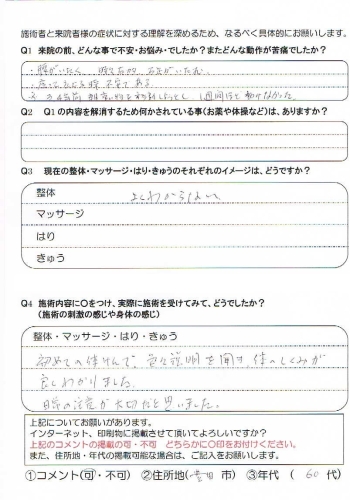 施術者と来院者様の症状に対する理解を深めるため、なるべく具体的にお願いします。
Q1 来院の前、どんな事で不安・お悩み・でしたか？またどんな動作が苦痛でしたか？
腰がいたく
1週間ほど動けなかった。
Q2 Q1の内容を解消するため何かされている事（お薬や体操など）は、ありますか？
Q3 現在の整体・マッサージ・はり・きゅうのそれぞれのイメージは、どうですか？
整体 よくわからない
マッサージ
はり
きゅう
Q4 施術内容に〇をつけ、実際に施術を受けてみて、どうでしたか？
（施術の刺激の感じや身体の感じ）
整体・マッサージ・はり・きゅう
初めての体けんで、色々説明を聞き、体のしくみが
良くわかりました。
日頃の注意が大切だと思いました。
上記についてお願いがあります。
インターネット、印刷物に掲載させて頂いてよろしいですか？
上記のコメントの掲載の可・不可 どちらかに〇印をお付けください。
また、住所地・年代の掲載可能な場合は、ご記入をお願いします。
①コメント（可・不可） ②住所地（豊田 市） ③年代 （ 60 代）